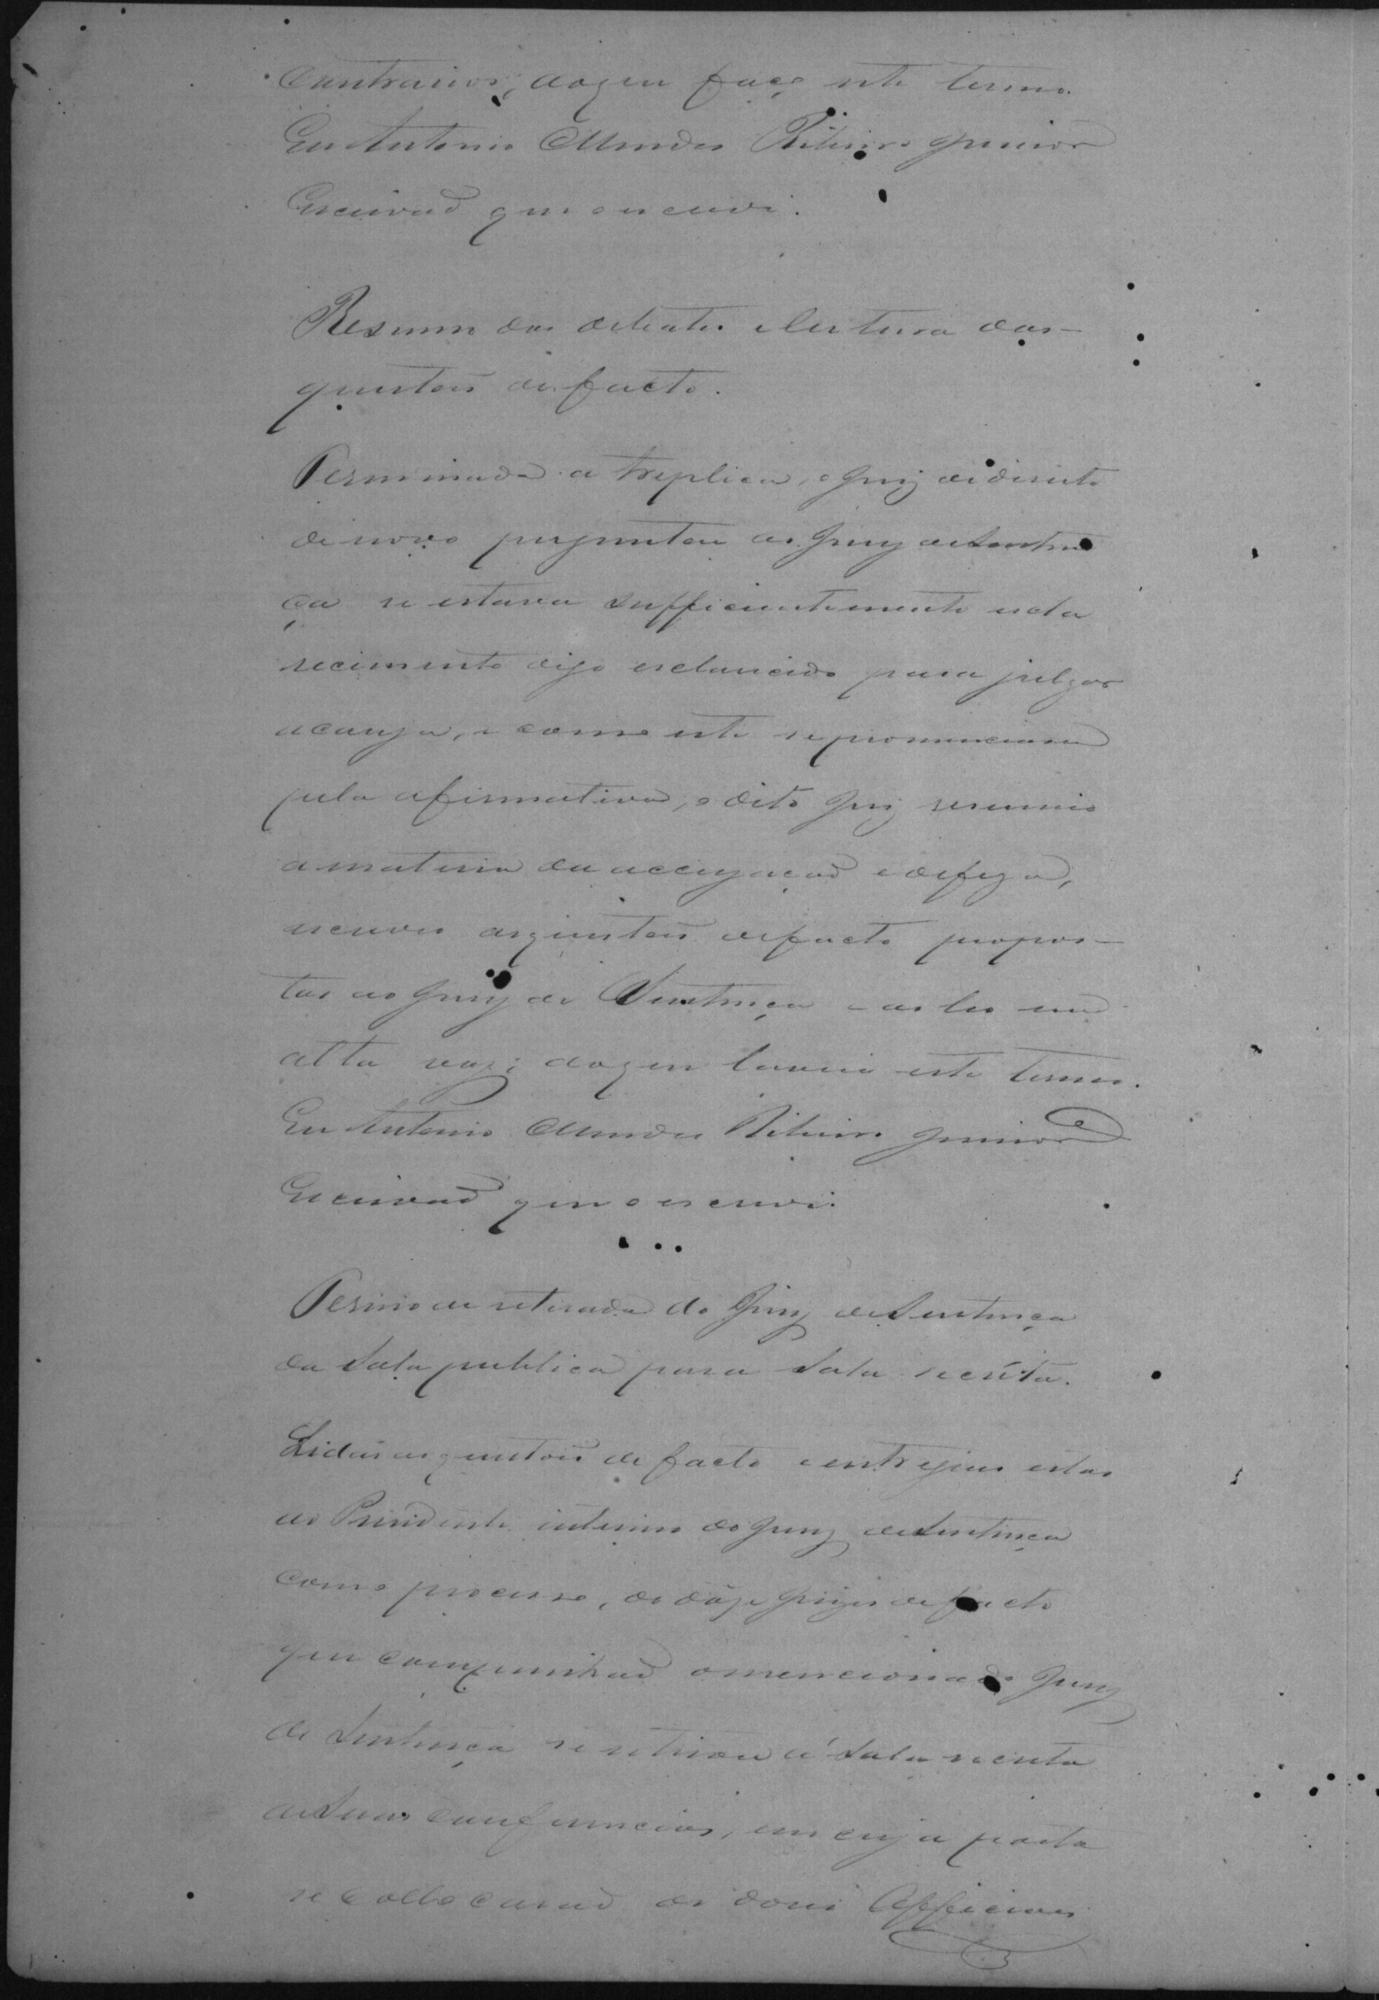 contrarios, do que faço este termo.
Eu Antonio Mendes Ribeiro Junior
Escrivaõ que o escrevi.
Resumo dos debates e leitura das
questões de facto.
Terminada a treplica, o Juiz de direito
de novo perguntou ao Jury de Senten
ça se estava sufficientemente escla
recimento digo esclarecido para julgar
a causa, e como este se pronunciou
pela afirmativa, o dito Juiz resumio
a materia da accusação e defeza,
escreveo as questões de facto propos-
tas ao Jury de Sentença e as leo em
alta voz; do que lavrei este termo.
Eu Antonio Mendes Ribeiro Junior
Escrivaõ que o escrevi.
Termo de retirada do Jury de Sentença
da Sala publica para Sala secreta.
Lidas as questões de facto e entregues estas
ao Presidente interino do Jury de Sentença
com o processo, os doze Juizes de facto
que compunhaõ o mencionado Jury
de Sentença se retirou á Sala secreta
de suas conferencias, em cuja porta
se collocaraõ os dous Officiaes